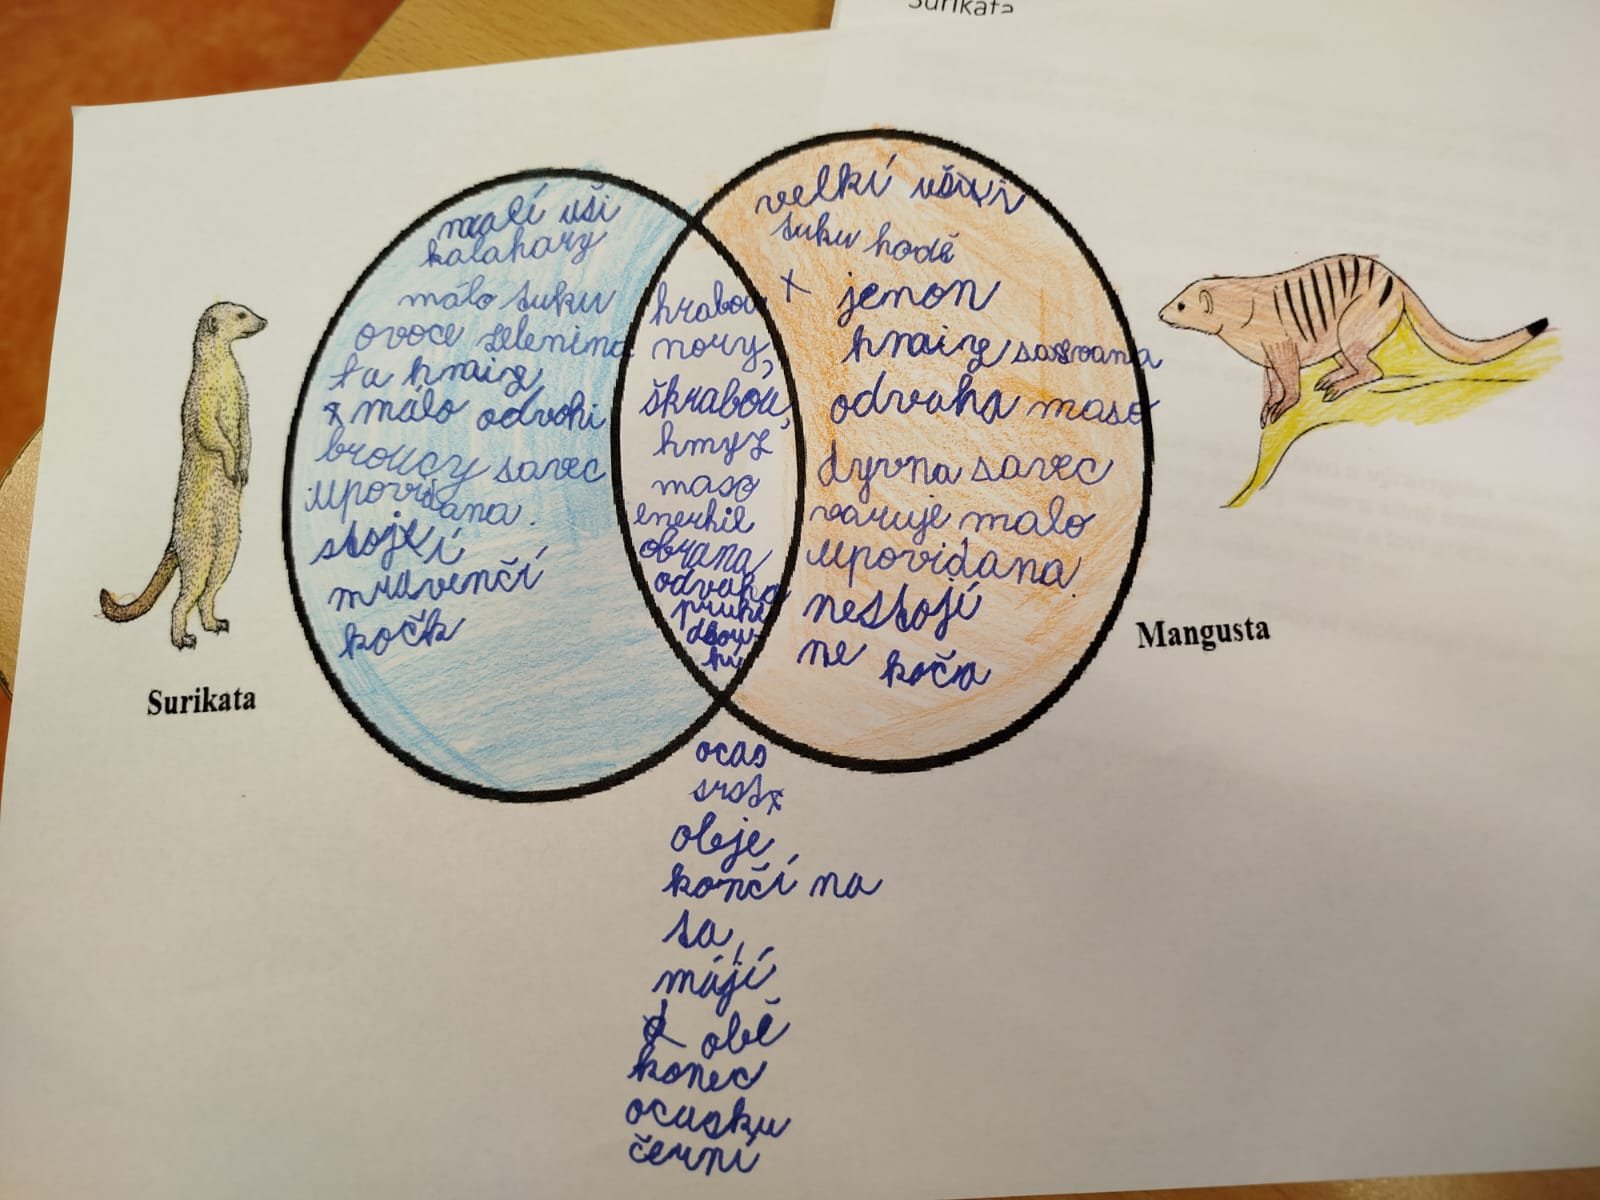 Surikata
malí uši
kalahary
málo tuku
ovoce zelenina
málo odvohi
broucy savec
upovidana.
stojí
mravenčí
kočk
hrabou
nory,
škrabou,
hmyz
maso
enerhie
obrana
odvaha
pruhi
dlouhi
velkí uši
tuku hodě
x jenon
hraizg savana
odvaha maso
dyvna savec
varuje malo
upovidana.
nestojí
ne koča
Surikata
Mangusta
ocas
srst
obje
končí na
ta,
májí
obě
konec
ocasku
černí